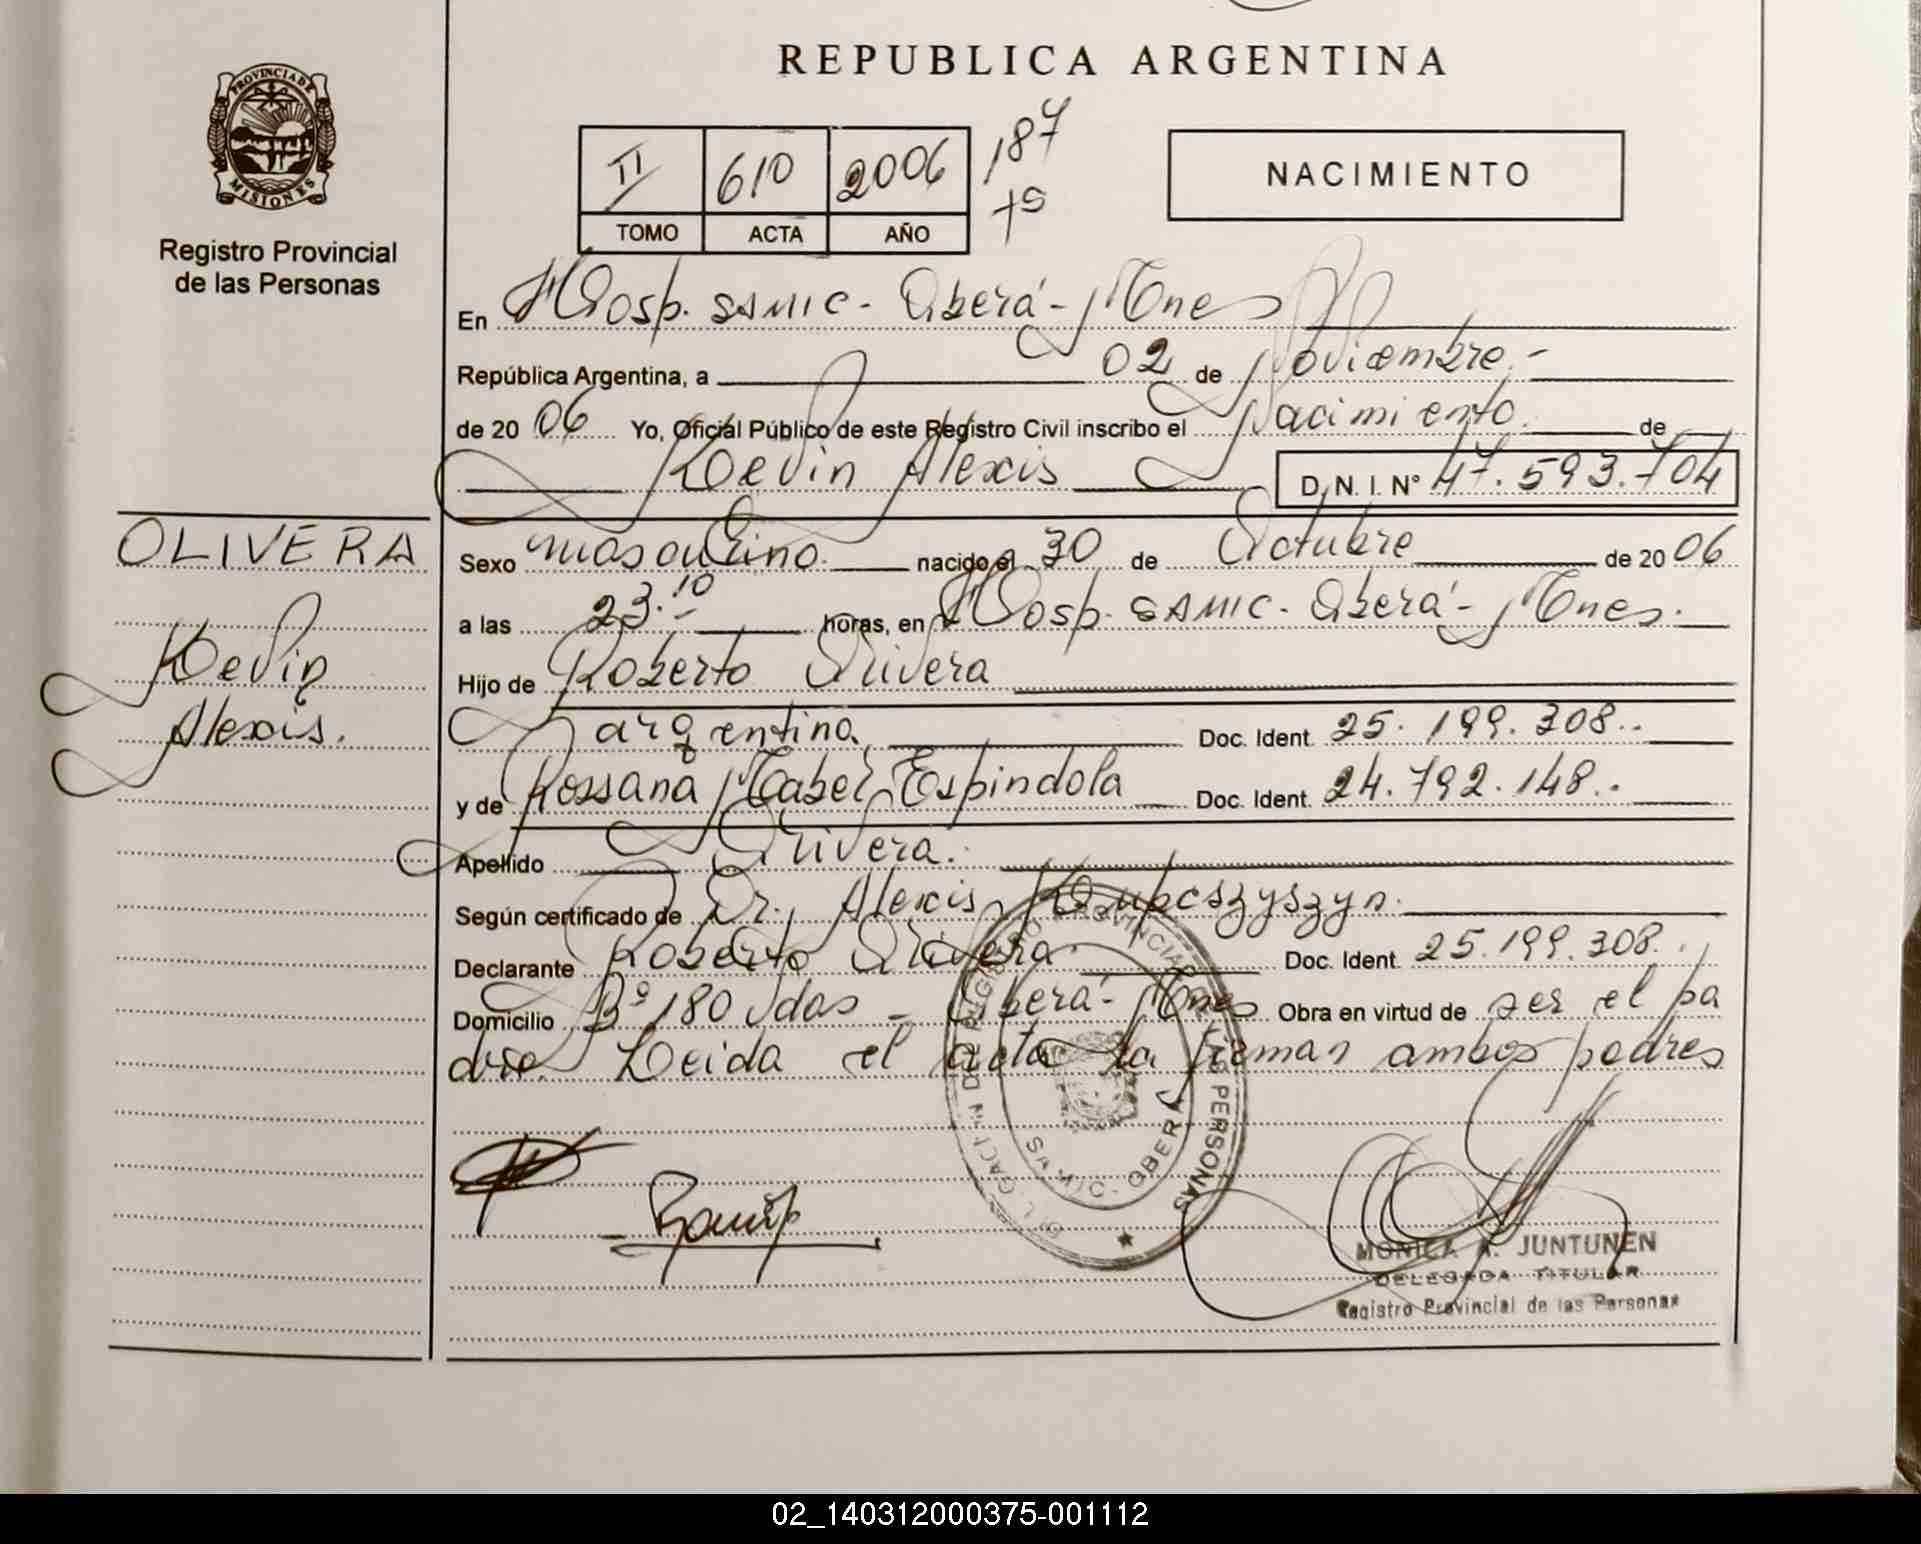 REPUBLICA ARGENTINA
PROVINCIA DE
MISIONES
Registro Provincial
de las Personas
II 610 2006 187
TOMO ACTA AÑO
NACIMIENTO
En Hosp. SAMIC - Oberá - Mnes
República Argentina, a 02 de Noviembre.-
de 20 06 Yo, Oficial Público de este Registro Civil inscribo el Nacimiento. de
Kevin Alexis D.N.I. N° 47.593.704
OLIVERA
Kevin
Alexis.
Sexo masculino. nacido el 30 de Octubre de 20 06
a las 23.10 horas, en Hosp. SAMIC - Oberá - Mnes.
Hijo de Roberto Olivera
argentino. Doc. Ident. 25.199.308..
y de Rossana Mabel Espindola Doc. Ident. 24.792.148..
Apellido Olivera.
Según certificado de Dr. Alexis Kupcszyszyn.
Declarante Roberto Olivera. Doc. Ident. 25.199.308..
Domicilio Bº 180 Vdas - Oberá - Mnes Obra en virtud de ser el pa
dre. Leida el acta la firman ambos padres
REGISTRO PROVINCIAL DE LAS PERSONAS
OBERA
MONICA A. JUNTUNEN
DELEGADA TITULAR
Registro Provincial de las Personas
02_140312000375-001112